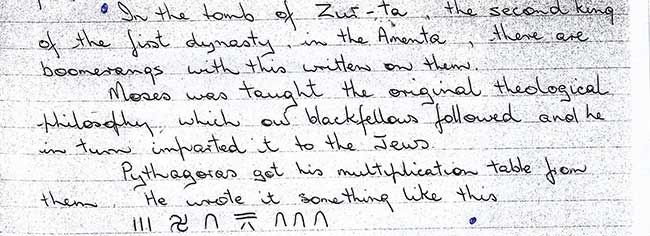 In the tomb of Zur-ta, the second king
of the first dynasty, in the Amenta, there are
boomerangs with this written on them.
Moses was taught the original theological
philosophy, which our blackfellows followed and he
in turn imparted it to the Jews.
Pythagoras got his multiplication table from
them. He wrote it something like this